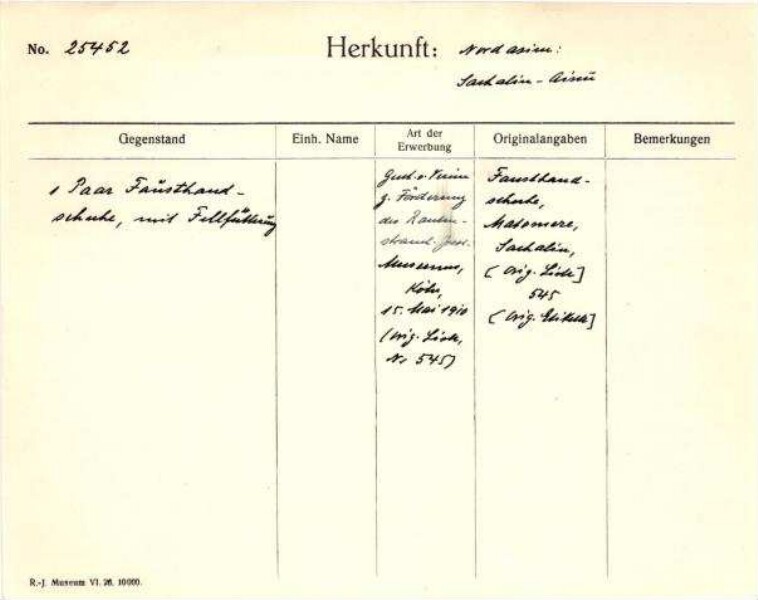 No. 25452
Herkunft: Nordasien:
Sachalin - Ainu
Gegenstand
Einh. Name
Art der
Erwerbung
Originalangaben
Bemerkungen
1 Paar Fausthand-
schuhe, mit Fellfütterung
Gesch. v. Verein
z. Förderung
des Rauten-
strauch-Joest-
Museums,
Köln,
15. Mai 1910
(Orig. Liste,
Nr 545)
Fausthand-
schuhe,
Sachalin,
[Orig. Liste]
545
[Orig. Etikett]
R.-J. Museum VI. 26. 10000.